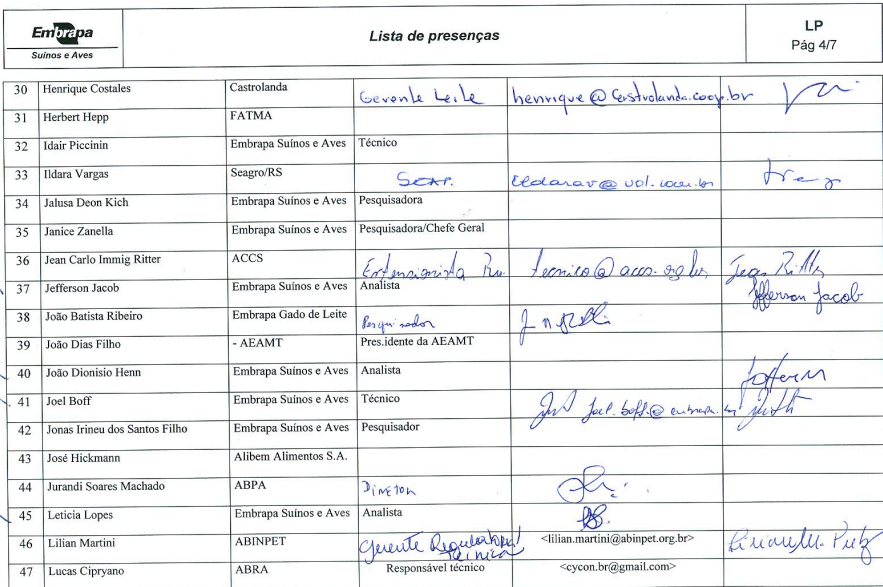 Embrapa
Suínos e Aves
Lista de presenças
LP
Pág 4/7
30 Henrique Costales Castrolanda Gerente Leite henrique@castrolanda.coop.br
31 Herbert Hepp FATMA
32 Idair Piccinin Embrapa Suínos e Aves Técnico
33 Ildara Vargas Seagro/RS
34 Jalusa Deon Kich Embrapa Suínos e Aves Pesquisadora
35 Janice Zanella Embrapa Suínos e Aves Pesquisadora/Chefe Geral
36 Jean Carlo Immig Ritter ACCS Extensionista tecnico@accs.org.br Jean Ritter
37 Jefferson Jacob Embrapa Suínos e Aves Analista Jefferson Jacob
38 João Batista Ribeiro Embrapa Gado de Leite Pesquisador
39 João Dias Filho - AEAMT Pres.idente da AEAMT
40 João Dionisio Henn Embrapa Suínos e Aves Analista
41 Joel Boff Embrapa Suínos e Aves Técnico joel.boff@embrapa.br
42 Jonas Irineu dos Santos Filho Embrapa Suínos e Aves Pesquisador
43 José Hickmann Alibem Alimentos S.A.
44 Jurandi Soares Machado ABPA Diretor
45 Leticia Lopes Embrapa Suínos e Aves Analista
46 Lilian Martini ABINPET Gerente Regulatório/ Técnica <lilian.martini@abinpet.org.br>
47 Lucas Cipryano ABRA Responsável técnico <cycon.br@gmail.com>